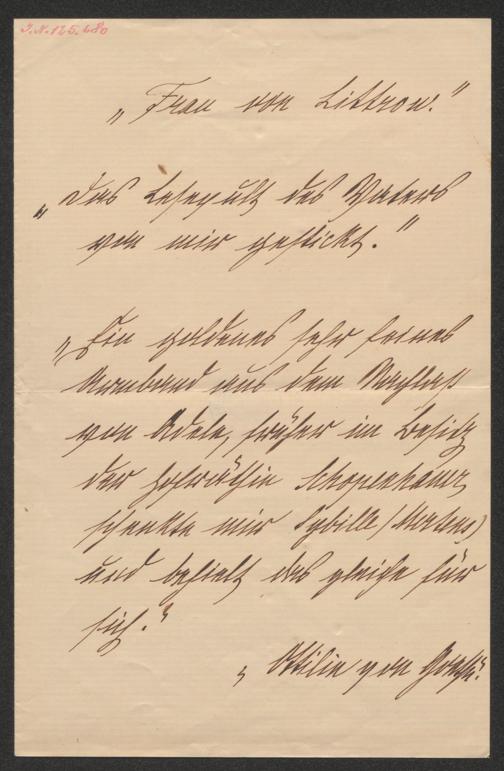 I.N. 125.680
„Frau von Littrow."
„Das Lesepult des Vaters
von mir gestickt."
„Ein goldenes sehr feines
Armband aus dem Nachlaß
von Adele, früher im Besitz
der Hofräthin Schopenhauer
schenkte mir Sybille (Mertens)
und behielt das gleiche für
sich."
„Ottilie von Goethe."